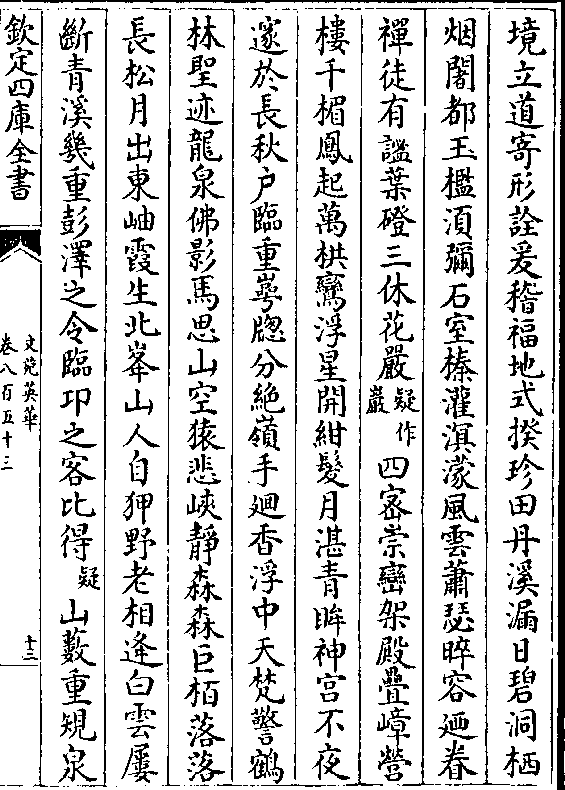 境立道寄形詮爰稽福地式揆珍田丹溪漏日碧洞栖
烟闍都玉檻湏彌石室榛灌溟濛風雲蕭瑟睟容廼眷
禪徒有謐葉磴三休花嚴疑作巖四宻崇巒架殿疊嶂營
樓千楣鳳起萬栱鸞浮星開紺髮月湛青眸神宫不夜
邃於長秋户臨重崿牎分絶嶺手廻香浮中天梵警鶴
林聖迹龍泉佛影馬思山空猿悲峽靜森森巨栢落落
長松月出東岫霞生北峯山人自狎野老相逢白雲屢
斷青溪幾重彭澤之令臨卭之客比得疑山藪重規泉
欽定四庫全書
文苑英華
卷八百五十三
十三